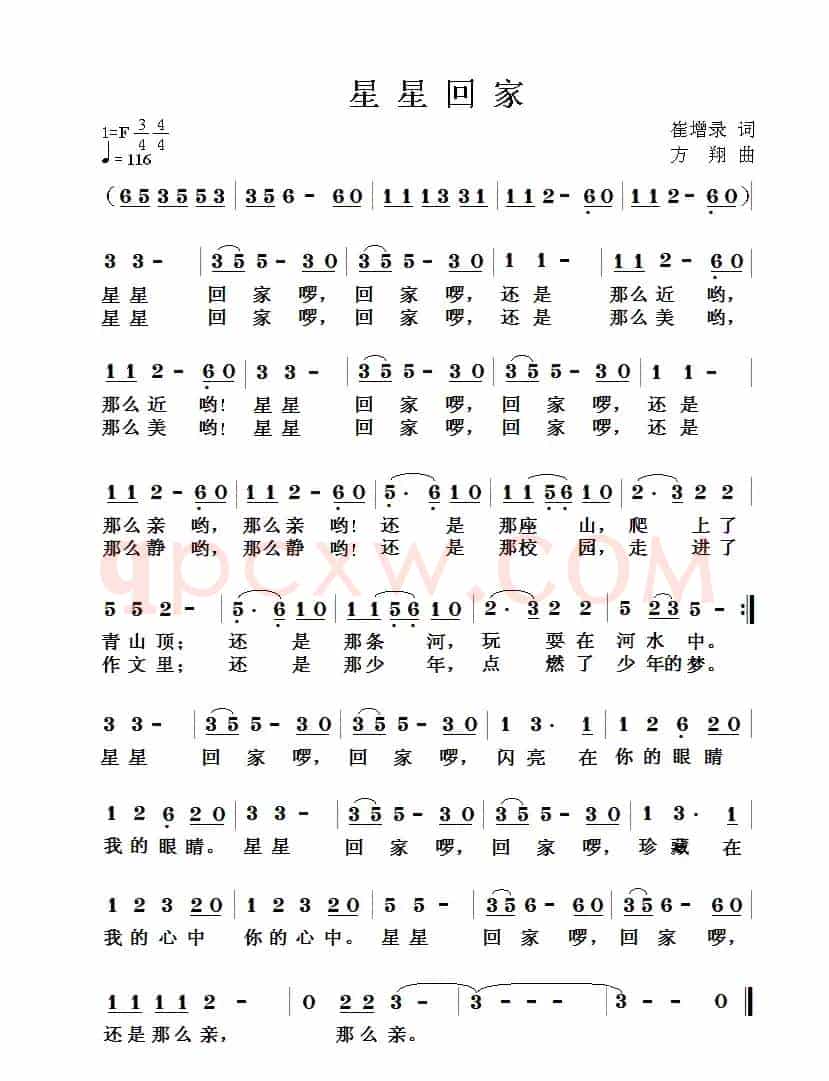 星星回家
1=F 3/4 4/4 崔增录 词
♩=116 方 翔 曲
(6 5 3 5 5 3 | 3 5 6 - 6 0 | 1 1 1 3 3 1 | 1 1 2 - 6 0 | 1 1 2 - 6 0) |
3 3 - | 3 5 5 - 3 0 | 3 5 5 - 3 0 | 1 1 - | 1 1 2 - 6 0 |
星星 回家啰，回家啰，还是 那么近哟，
星星 回家啰，回家啰，还是 那么美哟，
1 1 2 - 6 0 | 3 3 - | 3 5 5 - 3 0 | 3 5 5 - 3 0 | 1 1 - |
那么近哟！星星 回家啰，回家啰，还是
那么美哟！星星 回家啰，回家啰，还是
1 1 2 - 6 0 | 1 1 2 - 6 0 | 5 · 6 1 0 | 1 1 5 6 1 0 | 2 · 3 2 2 |
那么亲哟，那么亲哟！还是那座山，爬上了
那么静哟，那么静哟！还是那校园，走进了
qpcxw.COM
5 5 2 - | 5 · 6 1 0 | 1 1 5 6 1 0 | 2 · 3 2 2 | 5 2 3 5 - :‖
青山顶；还是那条河，玩耍在河水中。
作文里；还是那少年，点燃了少年的梦。
3 3 - | 3 5 5 - 3 0 | 3 5 5 - 3 0 | 1 3 · 1 | 1 2 6 2 0 |
星星 回家啰，回家啰，闪亮在你的眼睛
1 2 6 2 0 | 3 3 - | 3 5 5 - 3 0 | 3 5 5 - 3 0 | 1 3 · 1 |
我的眼睛。星星 回家啰，回家啰，珍藏在
1 2 3 2 0 | 1 2 3 2 0 | 5 5 - | 3 5 6 - 6 0 | 3 5 6 - 6 0 |
我的心中 你的心中。星星 回家啰，回家啰，
1 1 1 1 2 - | 0 2 2 3 - | 3 - - - | 3 - - 0 ‖
还是那么亲， 那么亲。